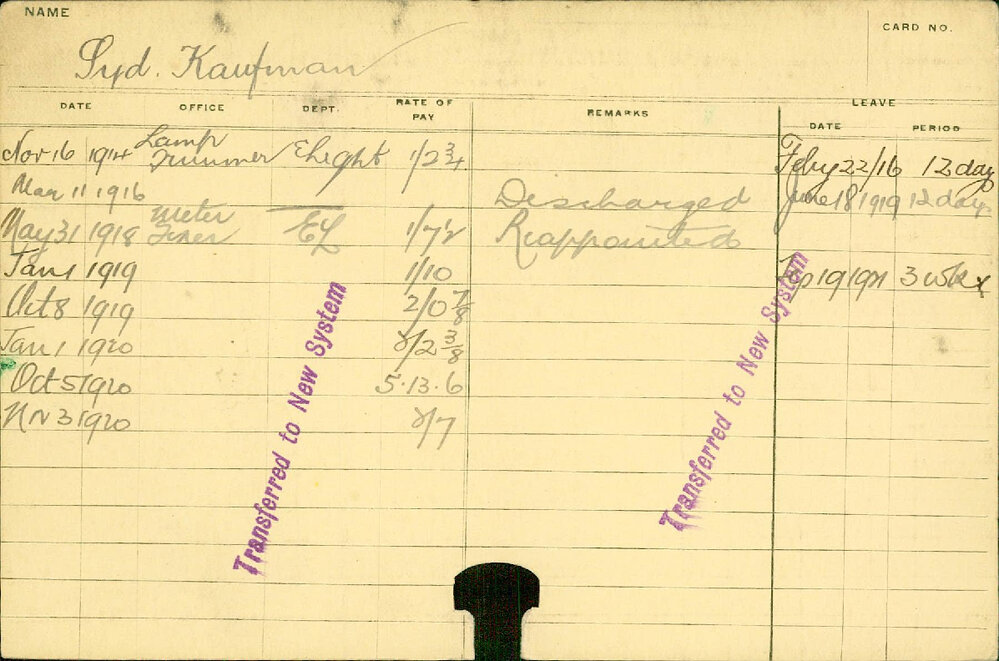 NAME
CARD NO.
Syd. Kaufman
DATE OFFICE DEPT. RATE OF PAY REMARKS LEAVE
DATE PERIOD
Nov 16 1914 Lamp Trimmer Elight 1/2 3/4 Feby 22/16 12 days
Mar 11 1916 Discharged June 18 1919 12 days
May 31 1918 Meter EL 1/7 1/2 Reappointed
Jan 1 1919 1/10 3 wks
Oct 8 1919 2/0 7/8
Jan 1 1920 2/2 3/8
Oct 5 1920 5.13.6
Nov 3 1920 2/7
Transferred to New System
Transferred to New System